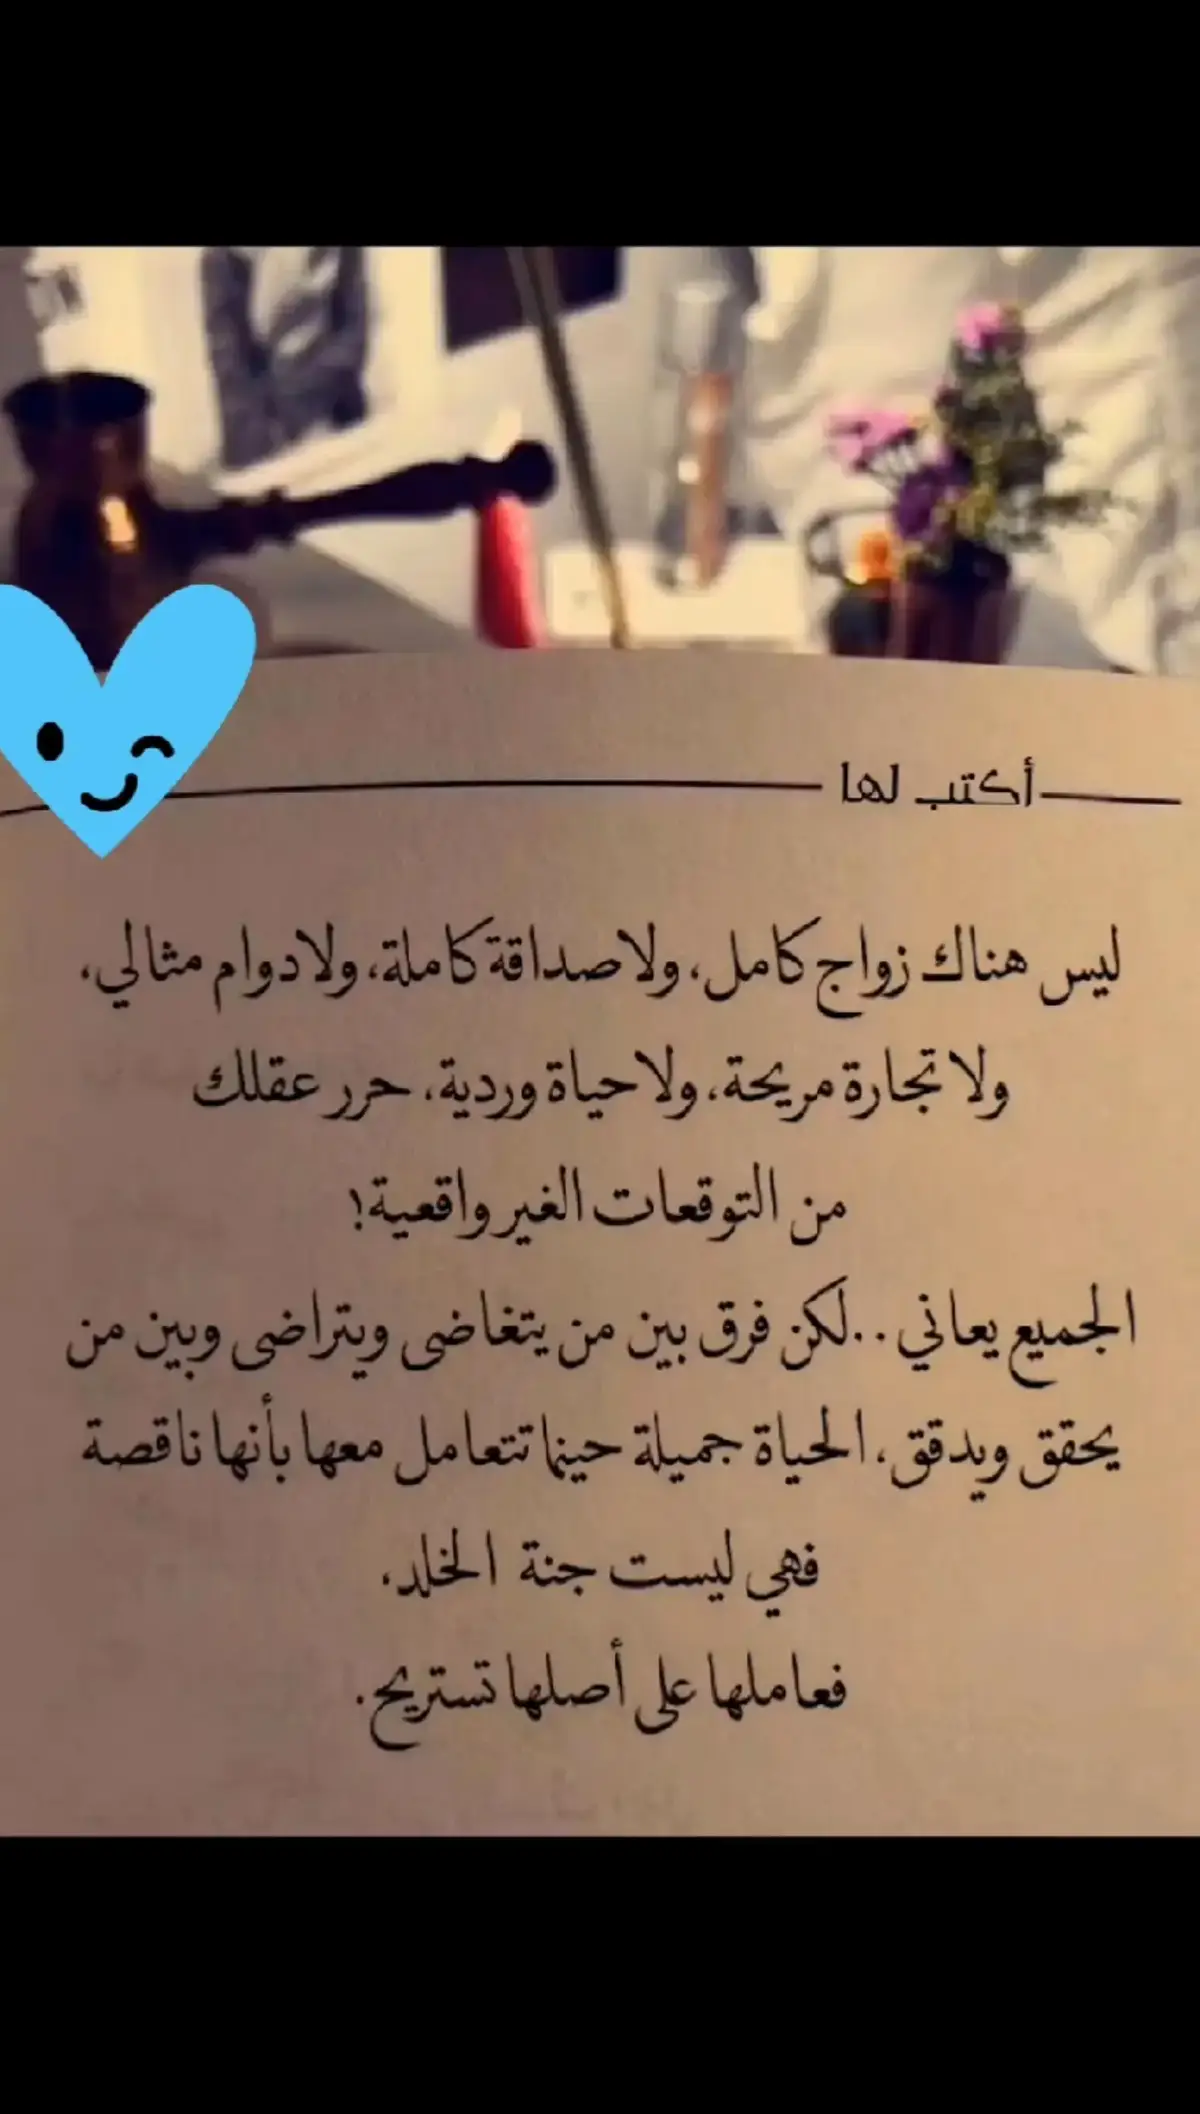 أكتب لها
ليس هناك زواج كامل، ولا صداقة كاملة، ولا دوام مثالي،
ولا تجارة مريحة، ولا حياة وردية، حرر عقلك
من التوقعات الغير واقعية!
الجميع يعاني ..لكن فرق بين من يتغاضى ويتراضى وبين من
يحقق ويدقق، الحياة جميلة حينما تتعامل معها بأنها ناقصة
فهي ليست جنة الخلد،
فعاملها على أصلها تستريح.